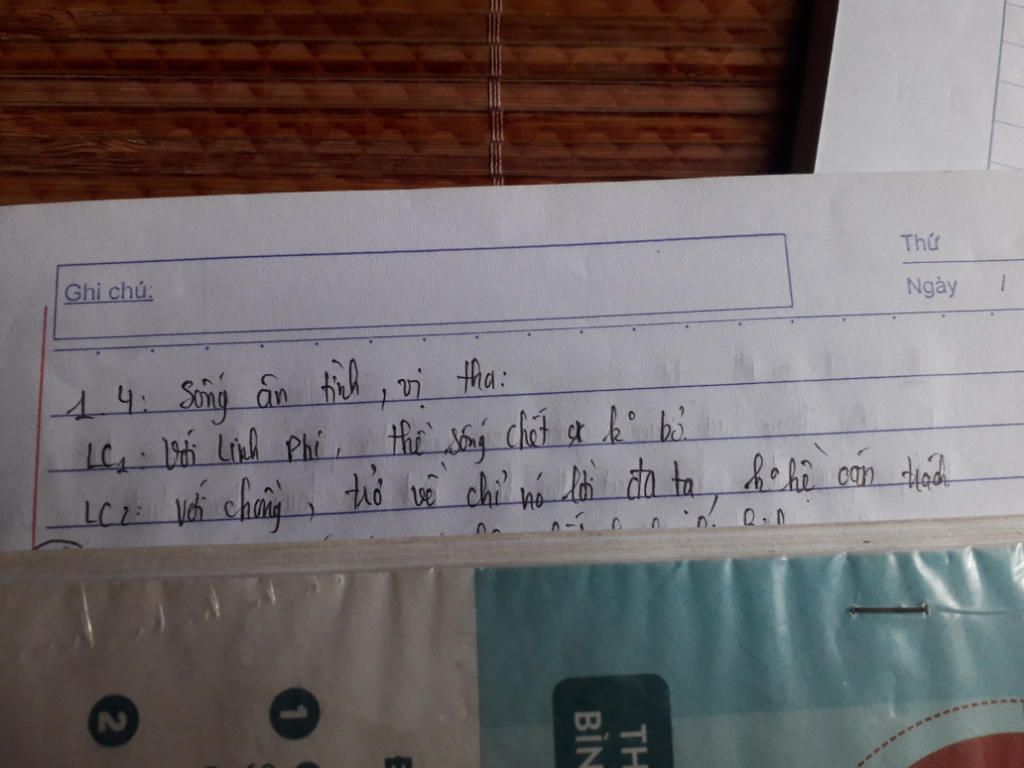 Thứ
Ghi chú:
Ngày /
1 4: Sống ân tình, vị tha:
LC1: Với Linh Phi, thề sống chết k° bỏ.
LC2: với chồng, trở về chỉ nó lời đa tạ, k° hề oán trách
1
2
TH
BÌN